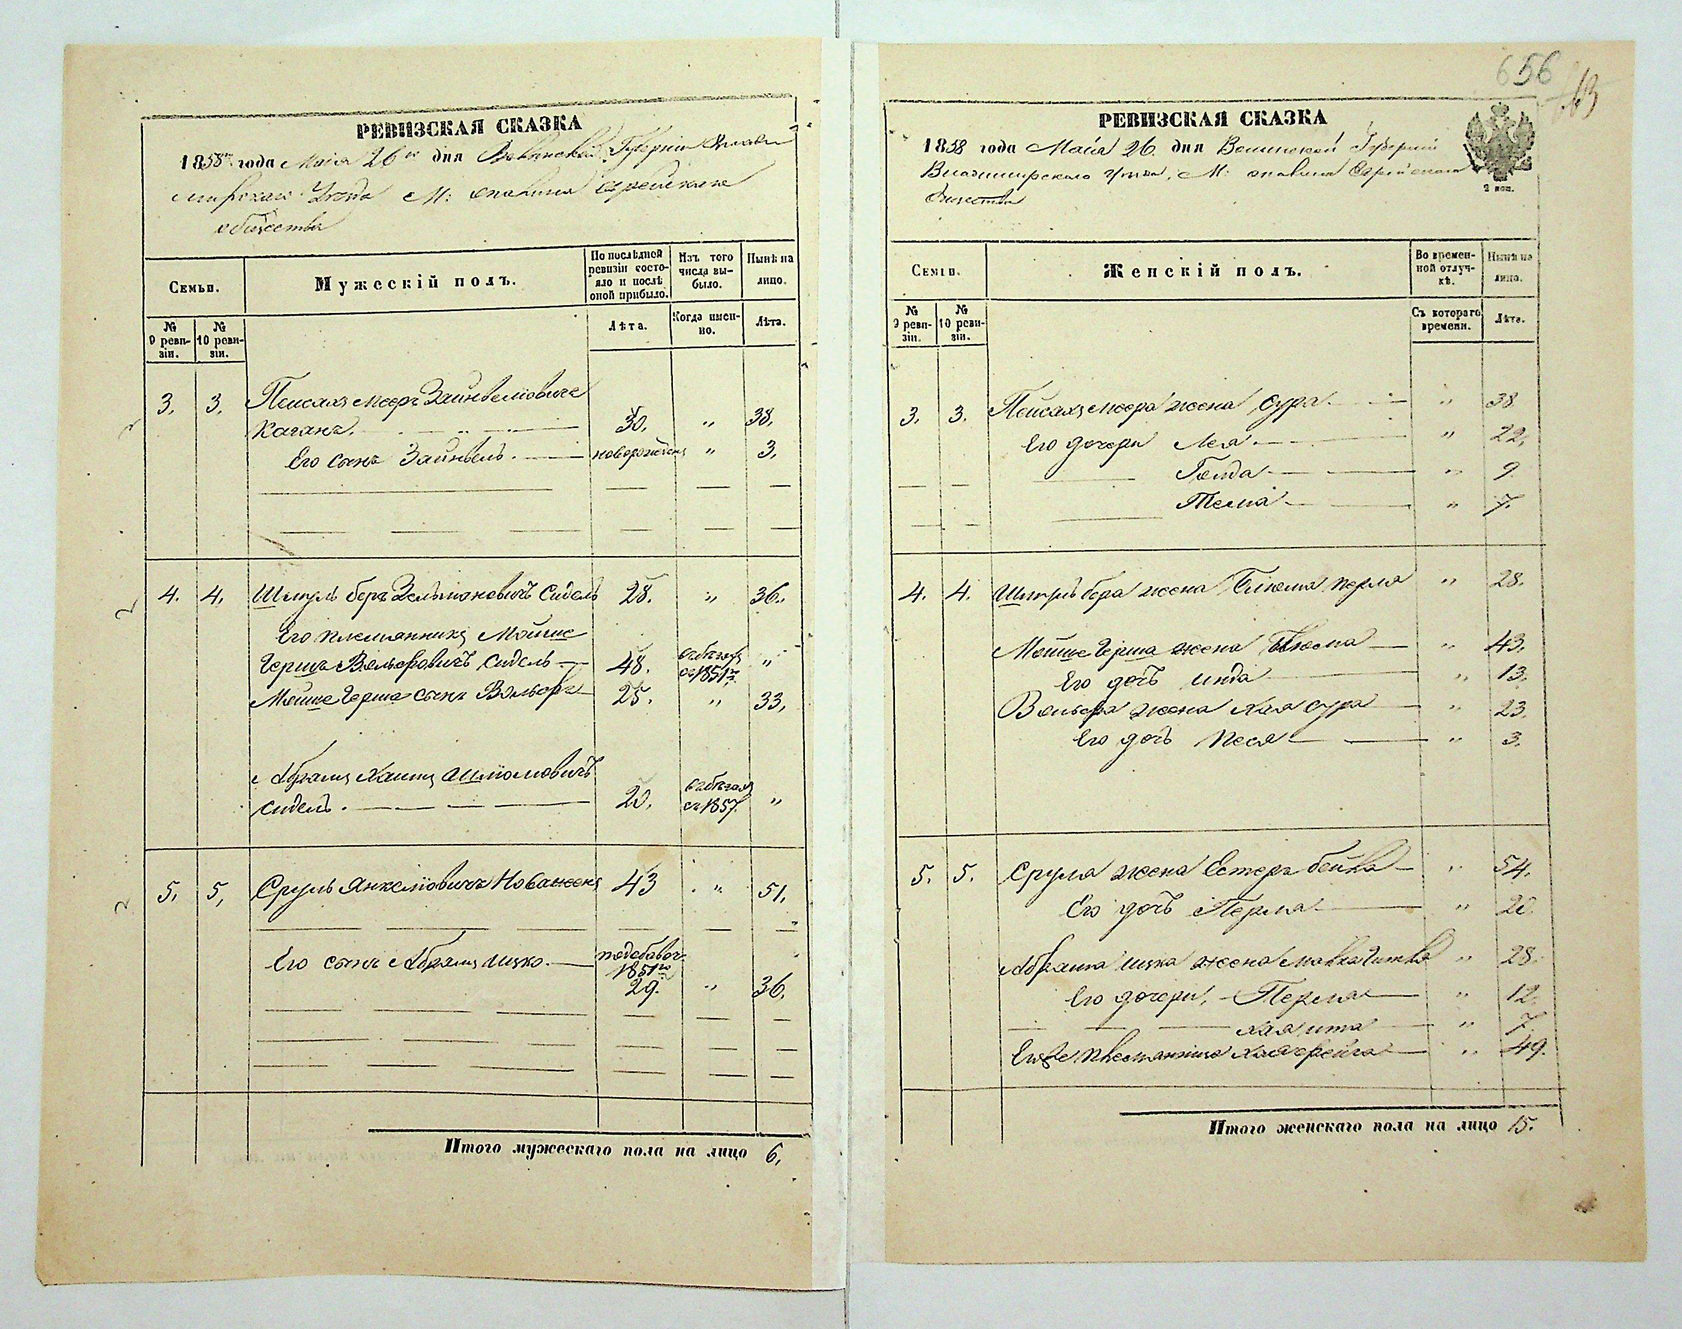 РЕВИЗСКАЯ СКАЗКА
1858 года Маія 26 дня Волынской Губерніи Влади
мірскаго Уѣзда М: опалина Еврейскаго
общества
Семьи.
Мужескій полъ.
По послѣдней ревизіи состояло и послѣ оной прибыло.
Изъ того числа выбыло.
Нынѣ на лицо.
№ 9 ревизіи.
№ 10 ревизіи.
Лѣта.
Когда именно.
Лѣта.
3. 3. Пейсахъ мееръ Зайнвеліовичъ
Каганъ. 30. „ 38.
Его сынъ Зайнвель. новорожденъ „ 3.
4. 4. Шмуль беръ Зельмановичъ Сидель 28. „ 36.
Его племянникъ Мойше
Гершъ Вольфовичъ Сидель 48. въ бѣгахъ съ 1851 „
Мойше Герша сынъ Вольфъ 25. „ 33.
Абрамъ Хаимъ Шліомовичъ
Сидель. 20. въ бѣгахъ съ 1857. „
5. 5. Сруль Янкеліовичъ 43 „ 51.
Его сынъ Абрамъ ицко. 1851
29. „ 36.
Итого мужескаго пола на лицо 6.
656
РЕВИЗСКАЯ СКАЗКА
1858 года Маія 26 дня Волынской Губерніи
Владимирскаго уѣзда, М: опалина Еврейскаго
Общества
2 коп.
Семьи.
Женскій полъ.
Во временной отлучкѣ.
Нынѣ на лицо.
№ 9 ревизіи.
№ 10 ревизіи.
Съ котораго времени.
Лѣта.
3. 3. Пейсахъ меера жена Сура „ 38
Его дочери Лея „ 22.
Голда „ 9
Тема „ 7.
4. 4. Шмуль бера жена перля „ 28.
Мойше Герша жена „ 43.
Его дочь инда „ 13.
Вольфа жена Хая сура „ 23
Его дочь Песя „ 3.
5. 5. Сруля жена Естеръ бейла „ 54.
Его дочь Перля „ 20.
Абрама ицка жена „ 28.
Его дочери, Перля „ 12.
Хая ита „ 7
Его племянница Хая фейга „ 49.
Итого женскаго пола на лицо 15.